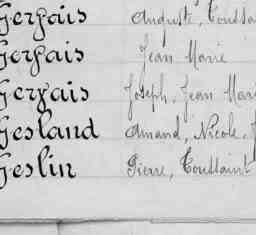 Gervais Auguste, Toussa
Gervais Jean Marie
Gervais Joseph, Jean Mari
Gesland Amand, Nicole,
Geslin Pierre, Toussaint